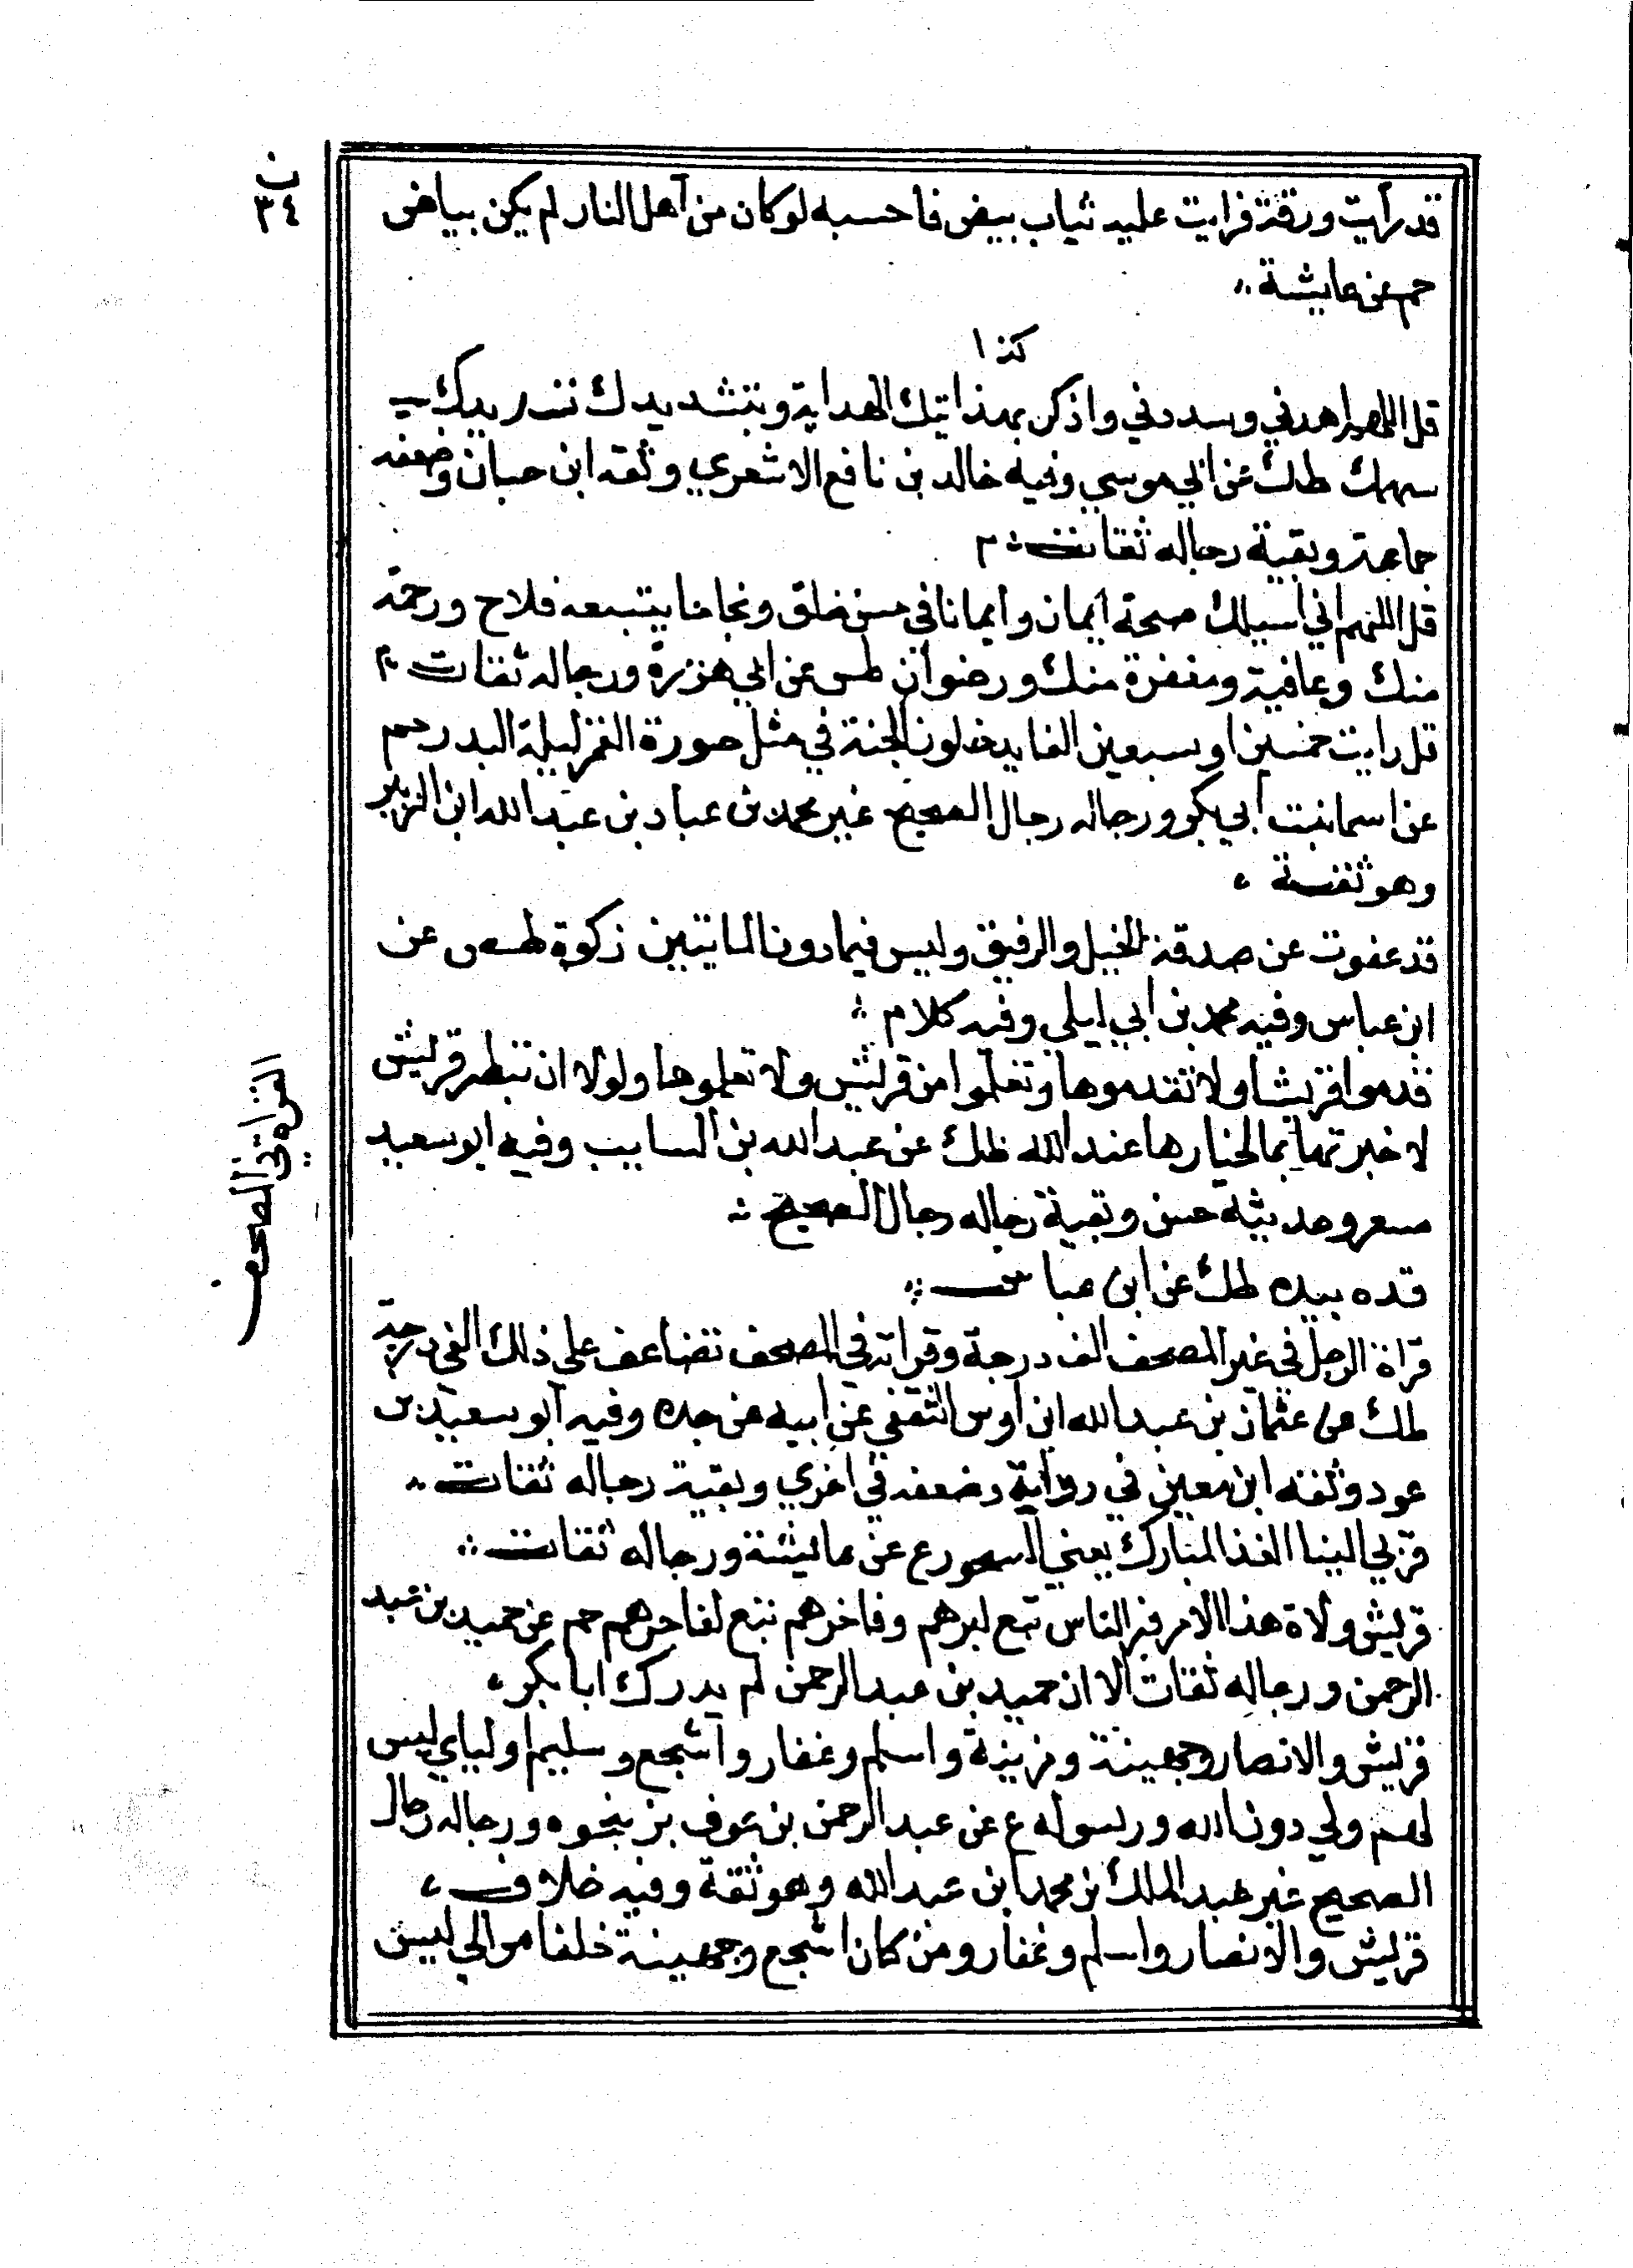 ب
٣٤
قد رأيت ورقة فرايت عليه ثياب بيض فاحسبه لو كان من اهل النار لم يكن بياض
حم عن عايشة
كذا
قل اللهم اهدني وسددني واذكر بهذايتك الهداية وبتشديدك تسديدك
سهمك طك عن ابي موسي وفيه خالد بن نافع الاشعري وثقه ابن حبان وضعفه
جماعة وبقية رجاله ثقات
قل اللهم اني اسيلك صحة ايمان وايمانا في حسن خلق ونجاحا يتبعه فلاح ورحمة
منك وعافية ومغفرة منك ورضوان طس عن ابي هريرة ورجاله ثقات
قل رايت خمسين او سبعين الفا يدخلون الجنة في مثل صورة القمر ليلة البدر حم
عن اسما بنت ابي بكر ورجاله رجال الصحيح غير محمد بن عباد بن عبد الله ابن الزبير
وهو ثقة
قد عفوت عن صدقة الخيل والرقيق وليس فيما دون المايتين زكوة طس عن
ابن عباس وفيه محمد بن ابي ليلى وفيه كلام
قدموا قريشا ولا تقدموها وتعلموا من قريش ولا تعلموها ولولا ان تبطر قريش
لاخبرتها بما لخيارها عند الله طك عن عبد الله بن السايب وفيه ابو سعيد
مسعر وحديثه حسن وبقية رجاله رجال الصحيح
قده بيده طك عن ابن عباس
قراة الرجل في غير المصحف الف درجة وقراته في المصحف تضاعف على ذلك الفي درجة
طك عن عثمان بن عبد الله ابن اوس الثقفي عن ابيه عن جده وفيه ابو سعيد بن
عود وثقه ابن معين في رواية وضعفه في اخري وبقية رجاله ثقات
قربي الينا الغذا المبارك يعني السحور ع عن عايشة ورجاله ثقات
قريش ولاة هذا الامر فبر الناس تبع لبرهم وفاخرهم تبع لفاجرهم حم عن حميد بن عبد
الرحمن ورجاله ثقات الا ان حميد بن عبد الرحمن لم يدرك ابا بكر
قريش والانصار وجهينة ومزينة واسلم وغفار واشجع وسليم اولياي ليس
لهم ولي دون الله ورسوله ع عن عبد الرحمن بن عوف بز بنحوه ورجاله رجال
الصحيح غير عبد الملك بن محمد ابن عبد الله وهو ثقة وفيه خلاف
قريش والانصار واسلم وغفار ومن كان اشجع وجهينة خلفا موالي ليس
القراة في المصحف